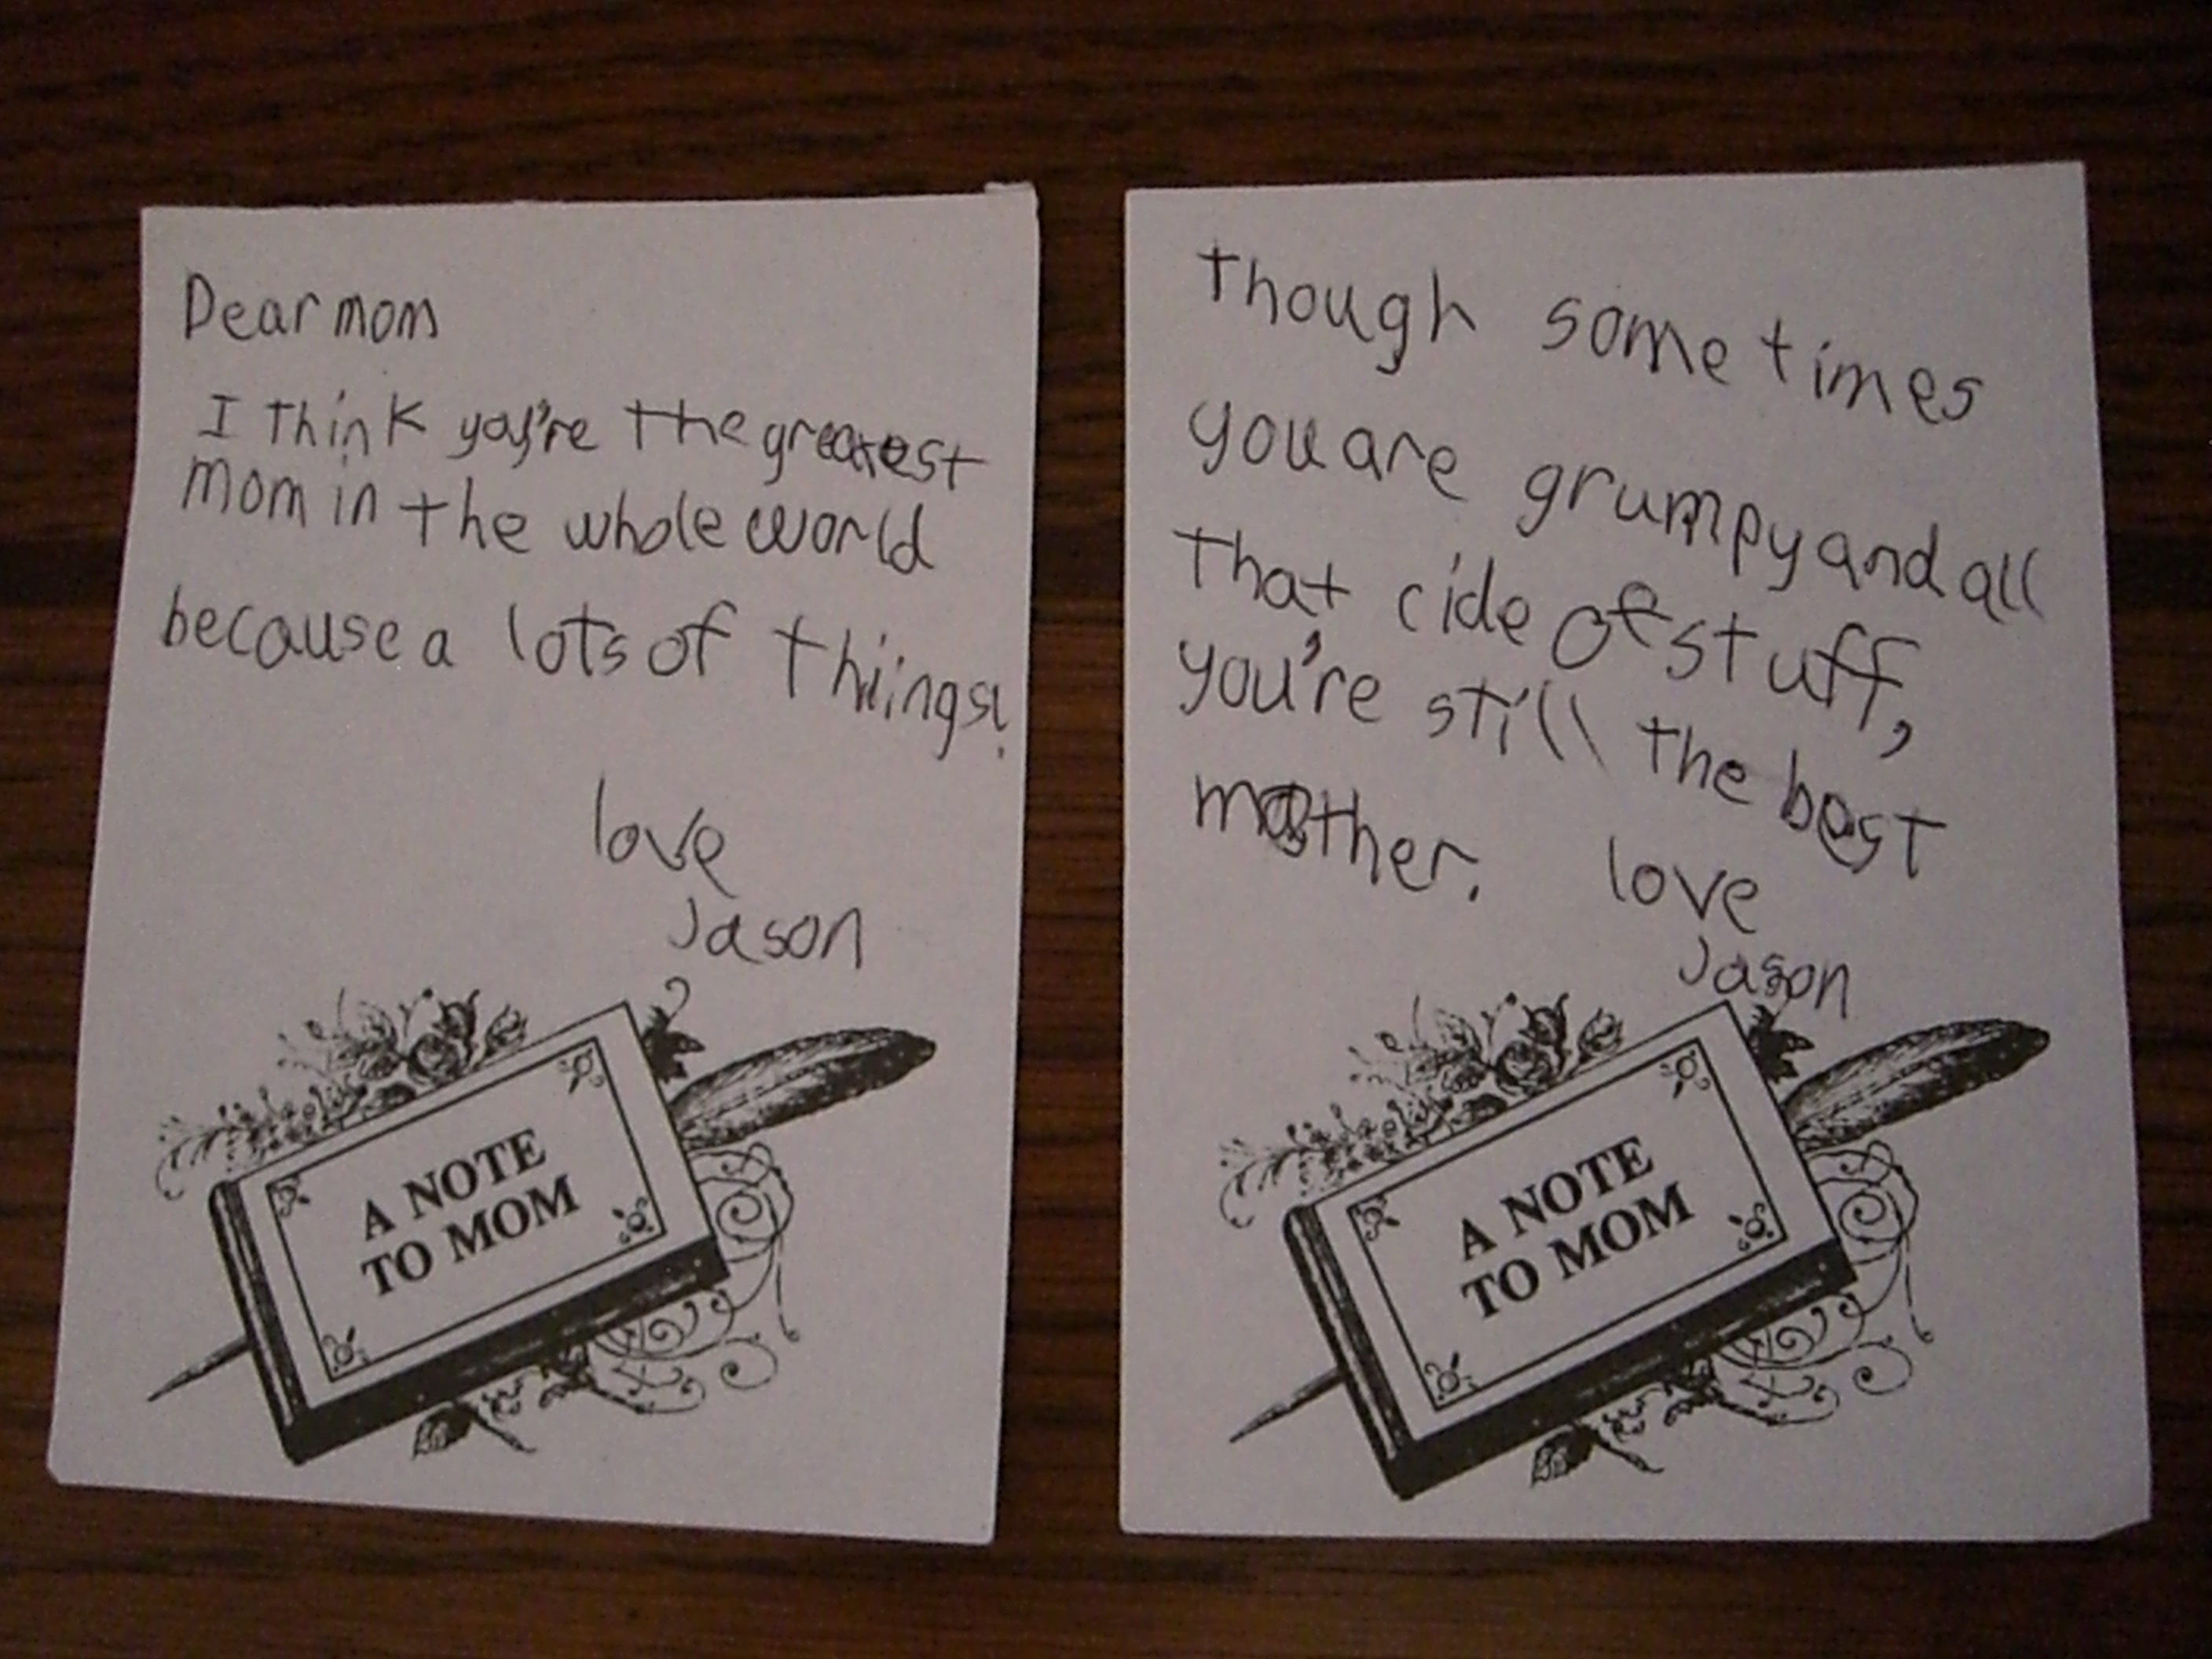 Dear mom
I think you're the greatest
mom in the whole world
because a lots of thiings!
love
Jason
A NOTE
TO MOM
though sometimes
you are grumpy and all
that cide of stuff,
you're still the best
mother. love
Jason
A NOTE
TO MOM